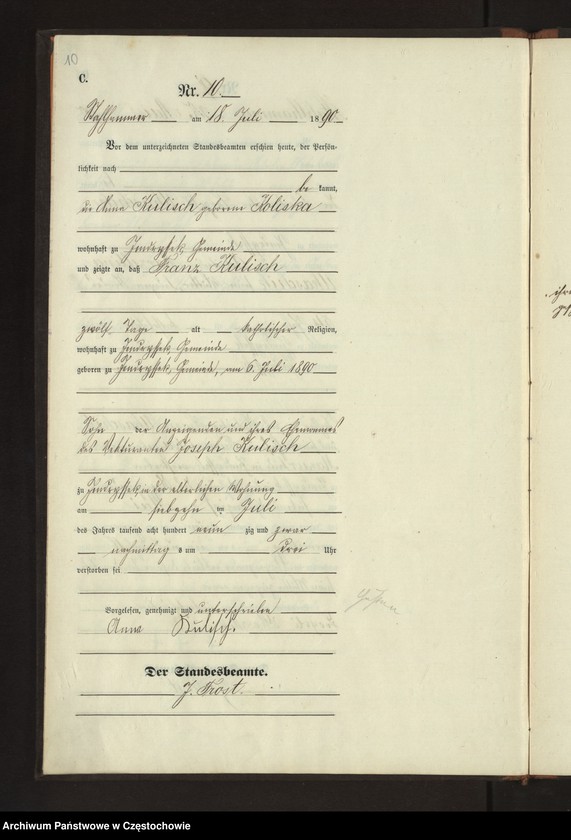 10
C.
Nr. 10.
Stahlhammer am 18 Juli 1890.
Vor dem unterzeichneten Standesbeamten erschien heute, der Persön-
lichkeit nach
be kannt,
die Anna Kulisch geborene Koliska
wohnhaft zu Gemeinde
und zeigte an, daß Franz Kulisch
zwölf Tage alt katholischer Religion,
wohnhaft zu Gemeinde
geboren zu Gemeinde, am 6. Juli 1890
Sohn der Anzeigenden und ihres Ehemannes
des Joseph Kulisch
zu in der elterlichen Wohnung
am siebzehn ten Juli
des Jahres tausend acht hundert neun zig und zwar
nachmittag s um drei Uhr
verstorben sei
Vorgelesen, genehmigt und unterschrieben
Anna Kulisch.
Der Standesbeamte.
J. Frost.
Archiwum Państwowe w Częstochowie